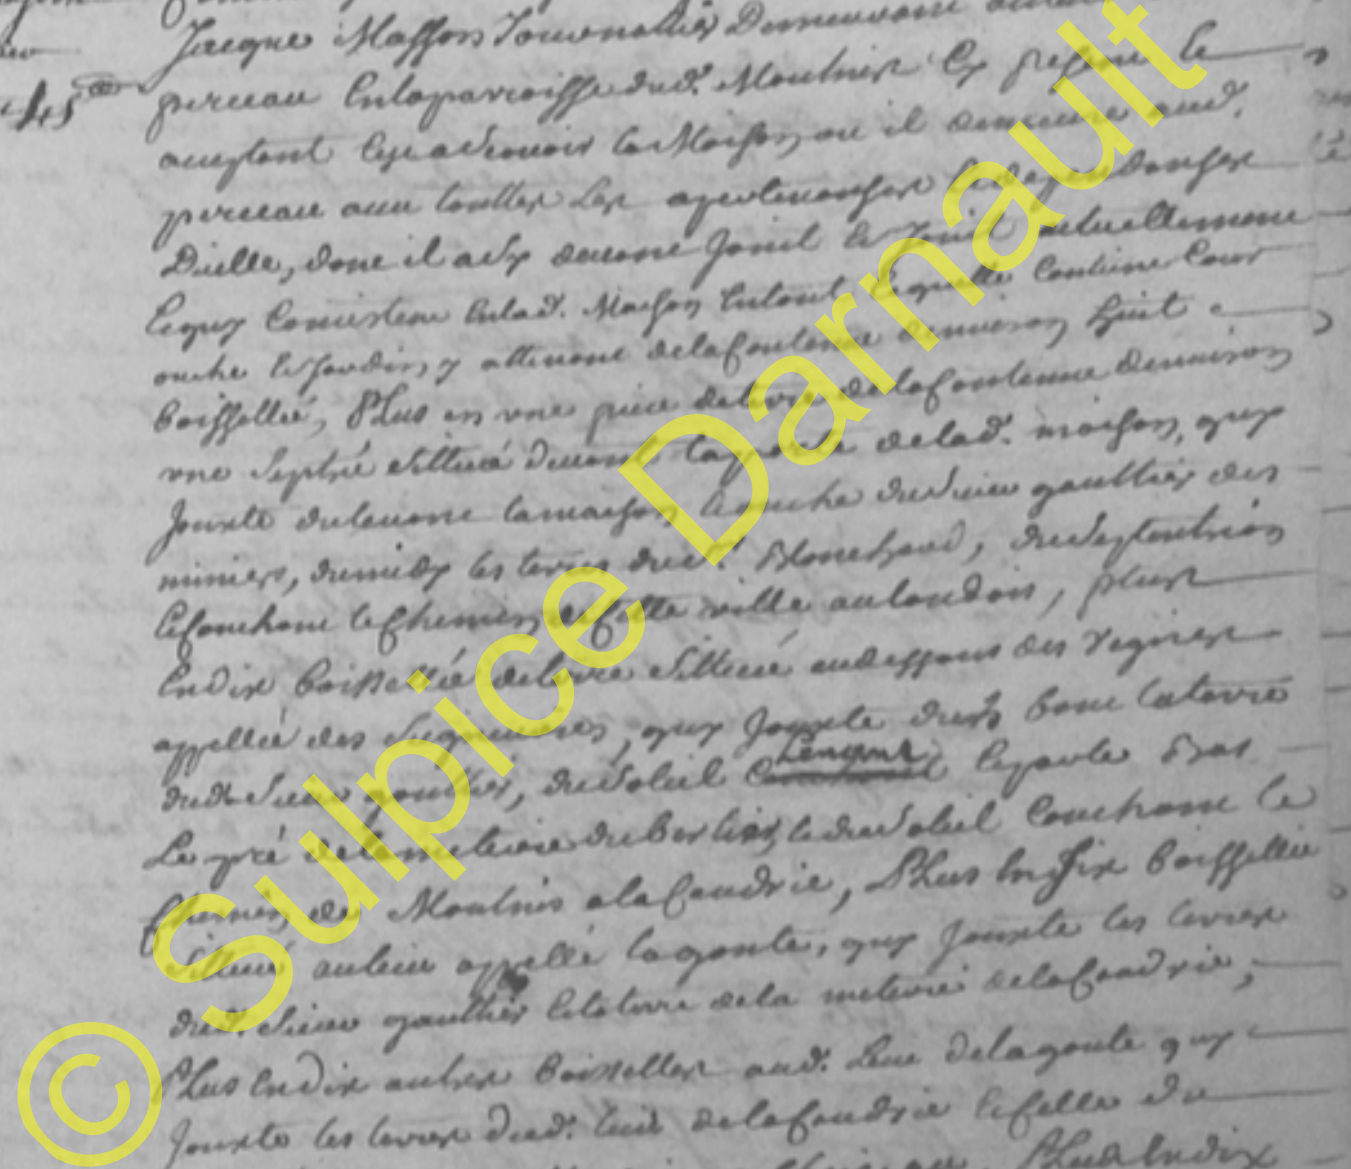 Jacque Masson Journallier Demeurant
45e
perreau En la parroisse dud. Moulnier Cy present le
aceptant C'est a scavoir la Maison ou il demeure aud.
perreau avec touttes Les apartenanses Et dependanses
D'icelle, dont il a cy devant Jouit Et Jouit actuellement
Ce quy Consistent En lad. Maison Entout Lequelle Contient Cour
ouche Et Jardin y attenant de la Contenue denviron huit
boissellée, Plus en une piece de terre de la Contenue denviron
une septré sittuée devant la porte de lad. maison, quy
Jouxte du levant la maison Et ouche du Sieur gaultier des
miniers, du midy les terres du d. Blanchard, du Septentrion
Et Couchant le Chemin de Celle ville au landois, plus
En dix boissellée de terre sittuée au dessous des vignes
appellée des quy Jouxte d'un bout la terre
dud. Sieur gaultier, du Soleil Levant Et par le bas
Le pré de la meterie du Et du Soleil Couchant Le
Chemin de Moulnis a la Caudrie, Plus En six boissellée
sittué au lieu appellé la goutte, quy Jouxte les terres
dud. Sieur gaultier Et la terre de la meterie de la Caudrie,
Plus En dix autres boisselles aud. Lieu de la goutte quy
Jouxte les terres dud. lieu de la Caudrie Et Celle du
Plus En dix
© Sulpice Darnault